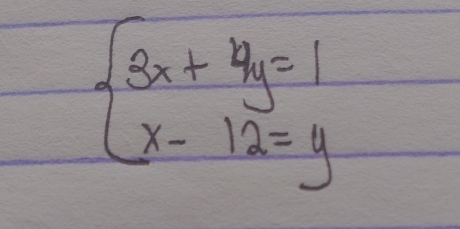 3x + 4y = 1
x - 12 = y